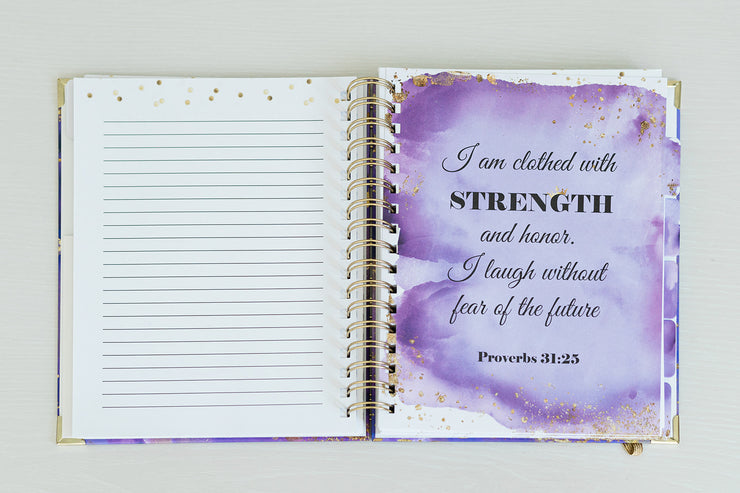 I am clothed with
STRENGTH
and honor.
I laugh without
fear of the future
Proverbs 31:25